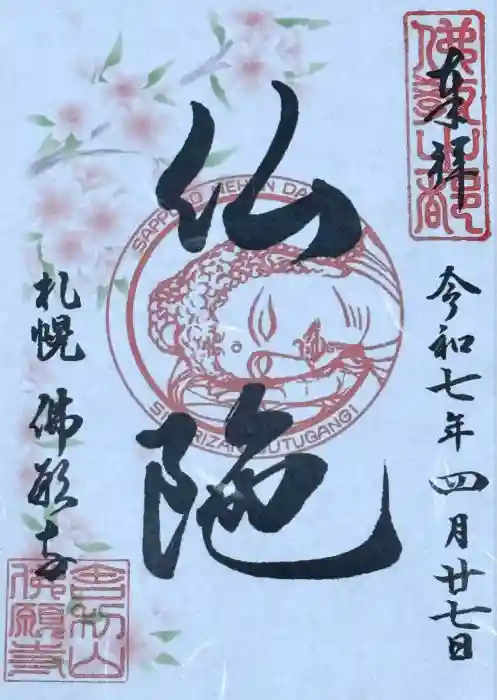 奉拝
令和七年四月廿七日
仏陀
札幌 佛願寺
舎利山
佛願寺
SAPPORO